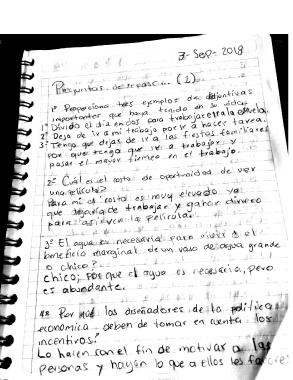 3-Sep-2018
Preguntas de repasación (1)
1º Proporciona tres ejemplos de
importantes que haya tenido en su vida:
1º Divido el día en dos para trabajar e ir a la escuela.
2º Dejo de ir a mi trabajo por ir a hacer tarea.
3º Tengo que dejar de ir a las fiestas familiares
por que tengo que ir a trabajar y
pasar el mayor tiempo en el trabajo.
2º Cuál es el costo de oportunidad de ver
una película?
Para mi el costo es muy elevado ya
que dejaría de trabajar y ganar dinero
para la película.
3º El agua es necesaria para vivir el
beneficio marginal de un vaso de agua grande
o chico?
chico; por que el agua es necesaria, pero
es abundante.
4º Por qué los diseñadores de la política
económica deben de tomar en cuenta los
incentivos?
Lo hacen con el fin de motivar a las
personas y hagan lo que a ellos los